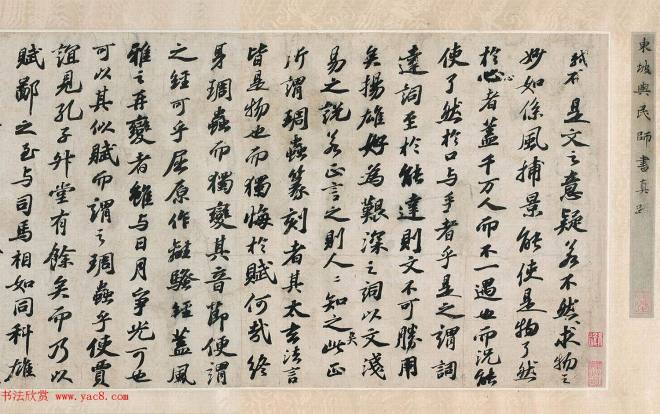 東坡與民師書真
是文之意疑若不然求物之
妙如係風捕景能使是物了然
於心者蓋千万人而不一遇也而況能
使了然於口与手者乎是之謂詞
達詞至於能達則文不可勝用
矣揚雄好為艱深之詞以文淺
易之說若正言之則人々知之矣此正
所謂琱蟲篆刻者其太玄法言
皆是物也而獨悔於賦何哉終
身琱蟲而獨變其音節便謂
之經可乎屈原作離騷經蓋風
雅之再變者雖与日月爭光可也
可以其似賦而謂之琱蟲乎使賈
誼見孔子升堂有餘矣而乃以
賦鄙之至与司馬相如同科雄
书法欣赏 www.yac8.com